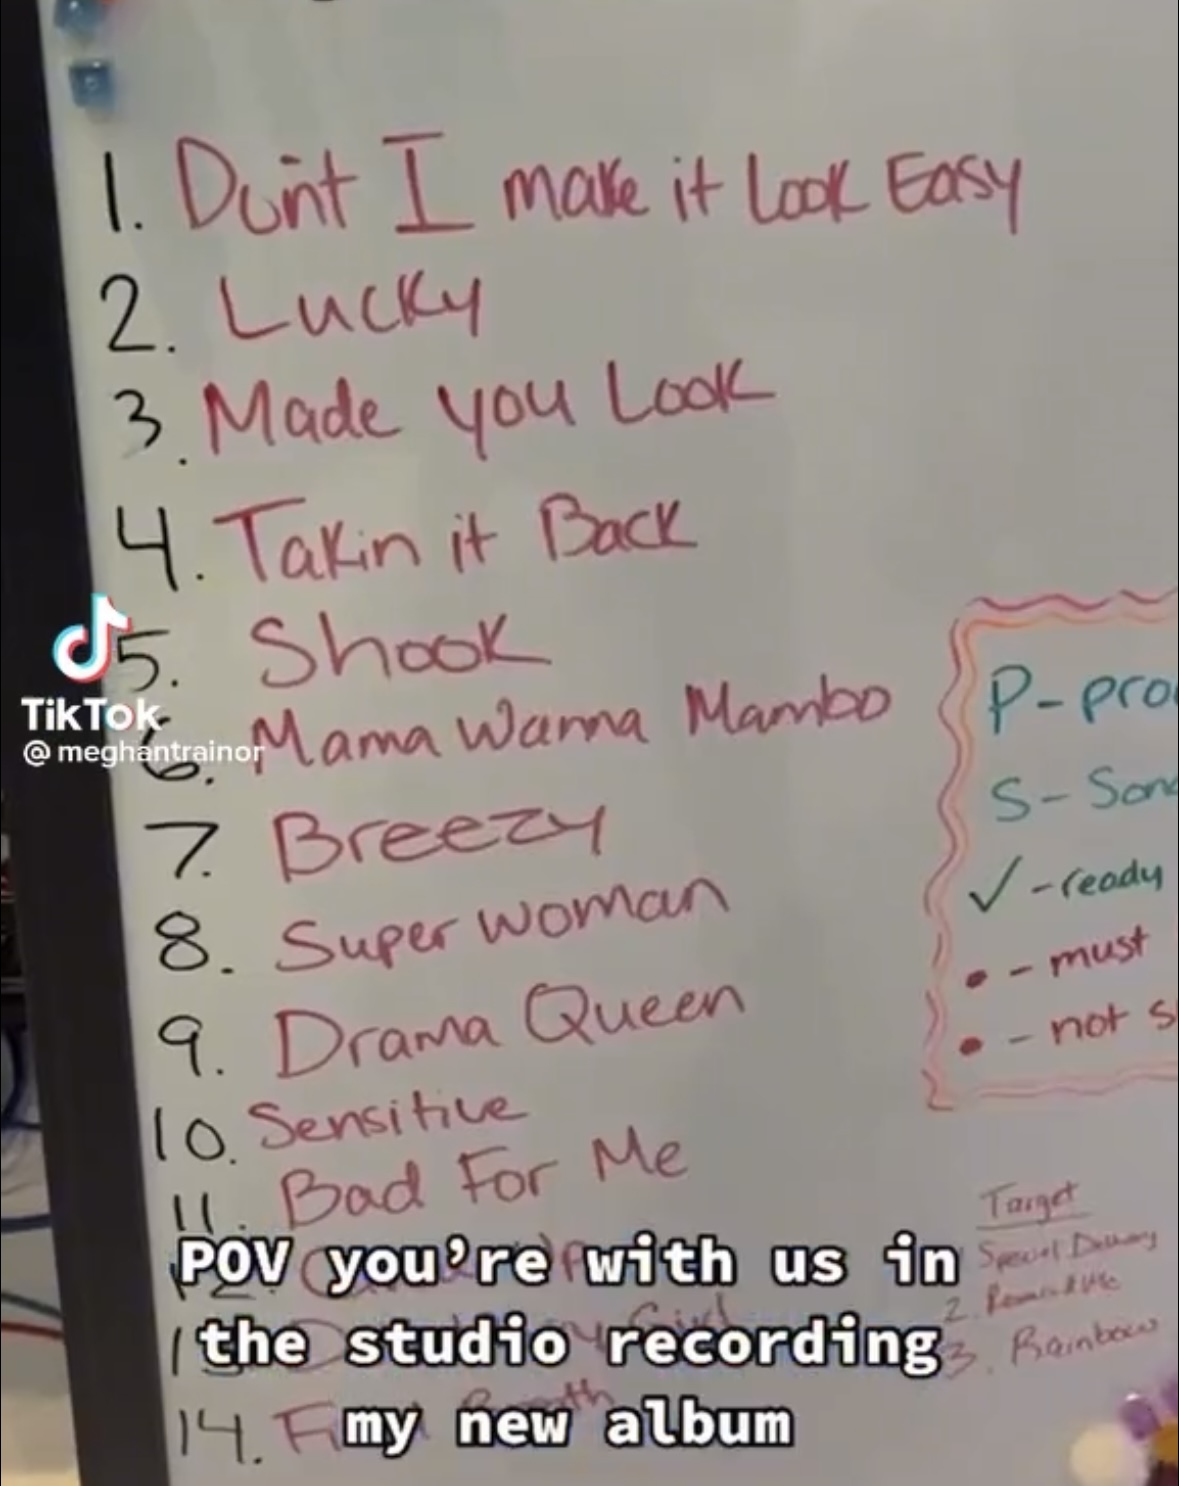 1. Don't I make it Look Easy
2. Lucky
3. Made you Look
4. Takin it Back
5. Shook
6. Mama Wanna Mambo
7. Breezy
8. Superwoman
9. Drama Queen
10. Sensitive
11. Bad For Me
12.
14.
TikTok
@meghantrainor
P-
S-
✓-ready
• - must
• - not
Target
Special Delivery
2.
3. Rainbow
POV you're with us in
the studio recording
my new album